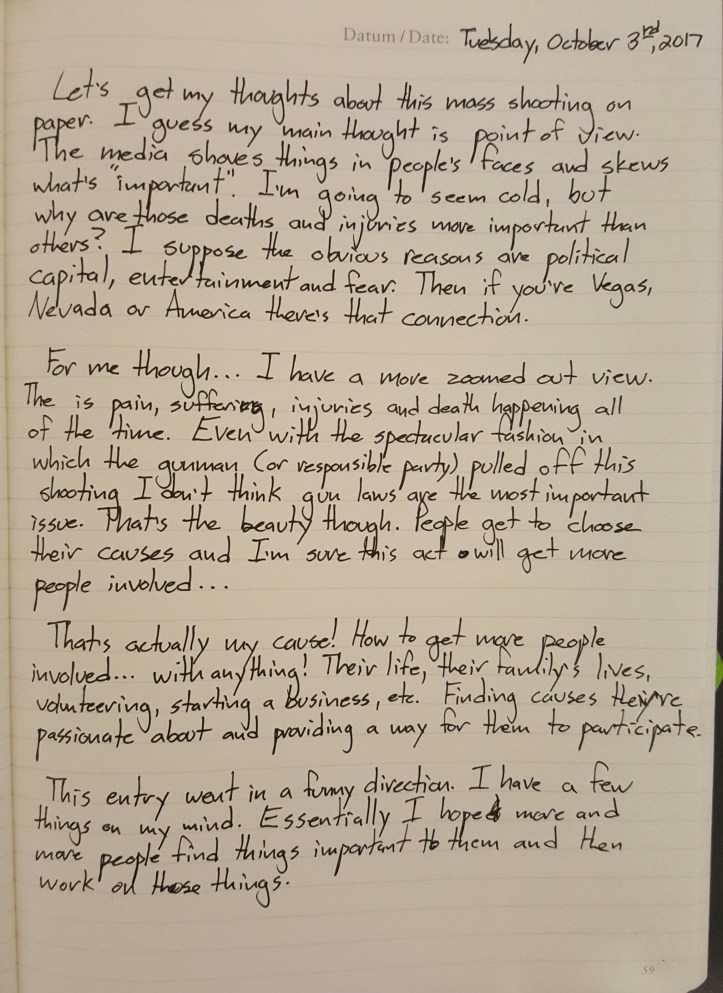 Datum / Date: Tuesday, October 3rd, 2017
Let's get my thoughts about this mass shooting on
paper. I guess my main thought is point of view.
The media shoves things in people's faces and skews
what's "important". I'm going to seem cold, but
why are those deaths and injuries more important than
others? I suppose the obvious reasons are political
capital, entertainment and fear. Then if you're Vegas,
Nevada or America there's that connection.
For me though... I have a more zoomed out view.
The is pain, suffering, injuries and death happening all
of the time. Even with the spectacular fashion in
which the gunman (or responsible party) pulled off this
shooting I don't think gun laws are the most important
issue. That's the beauty though. People get to choose
their causes and I'm sure this act will get more
people involved...
That's actually my cause! How to get more people
involved... with anything! Their life, their family's lives,
volunteering, starting a business, etc. Finding causes they're
passionate about and providing a way for them to participate.
This entry went in a funny direction. I have a few
things on my mind. Essentially I hope more and
more people find things important to them and then
work on those things.
59